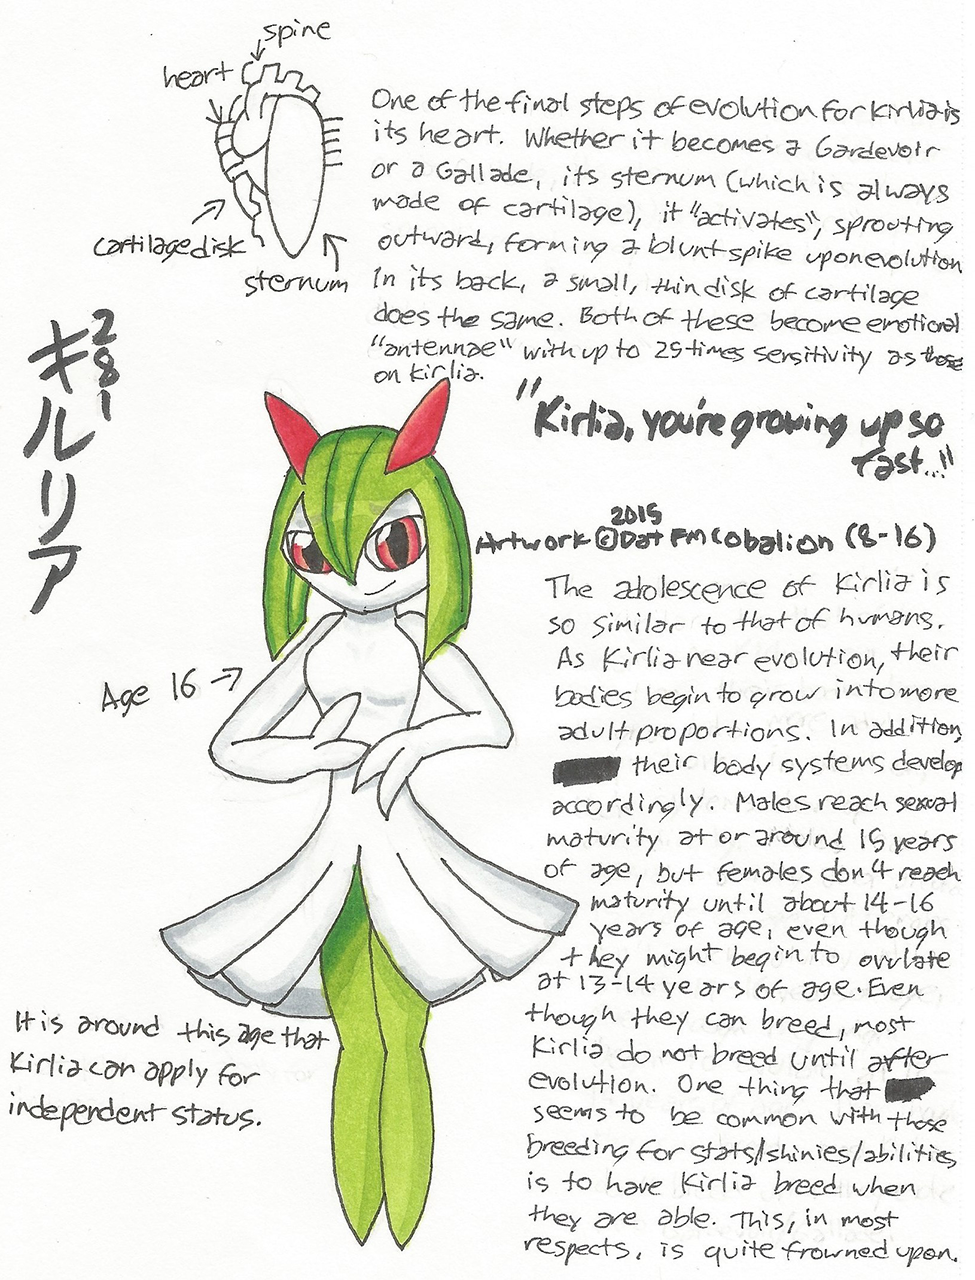 spine
heart
cartilage disk
sternum
One of the final steps of evolution for Kirlia is
its heart. Whether it becomes a Gardevoir
or a Gallade, its sternum (which is always
made of cartilage), it "activates", sprouting
outward, forming a blunt spike upon evolution
In its back, a small, thin disk of cartilage
does the same. Both of these become emotional
"antennae" with up to 25 times sensitivity as those
on Kirlia.
281
キルリア
"Kirlia, you're growing up so
fast..."
Artwork © 2015 DatFMCobalion (8-16)
Age 16 →
The adolescence of Kirlia is
so similar to that of humans.
As Kirlia near evolution, their
bodies begin to grow into more
adult proportions. In addition,
their body systems develop
accordingly. Males reach sexual
maturity at or around 15 years
of age, but females don't reach
maturity until about 14-16
years of age, even though
they might begin to ovulate
at 13-14 years of age. Even
though they can breed, most
Kirlia do not breed until after
evolution. One thing that
seems to be common with those
breeding for stats/shinies/abilities
is to have Kirlia breed when
they are able. This, in most
respects, is quite frowned upon.
It is around this age that
Kirlia can apply for
independent status.